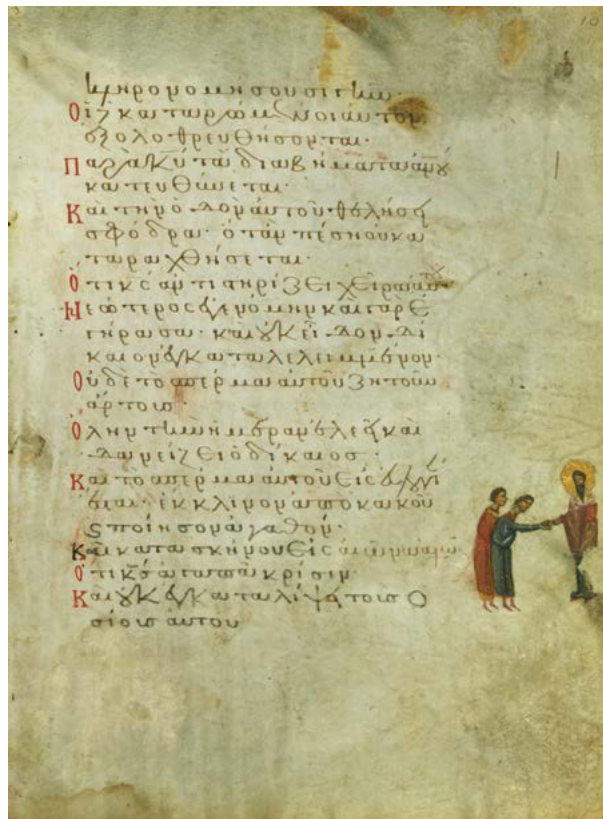 10
κληρονομήσουσι γῆν·
Οἱ δὲ καταρώμενοι αὐτὸν
ἐξολοθρευθήσονται·
Παρὰ κῦ τὰ διαβήματα ἀνου
κατευθύνεται·
Καὶ τὴν ὁδὸν αὐτοῦ θελήσει
σφόδρα· ὅταν πέσῃ οὐ κα
ταραχθήσεται·
Ὅτι κς ἀντιστηρίζει χεῖρα αὐτοῦ
Νεώτερος ἐγενόμην καὶ γὰρ ἐ
γήρασα· καὶ οὐκ εἶδον δί
καιον ἐγκαταλελειμμένον·
Οὐδὲ τὸ σπέρμα αὐτοῦ ζητοῦν
ἄρτους·
Ὅλην τὴν ἡμέραν ἐλεεῖ καὶ
δανείζει ὁ δίκαιος·
Καὶ τὸ σπέρμα αὐτοῦ εἰς εὐλογί
ἔσται· ἔκκλινον ἀπὸ κακοῦ
ϛ ποίησον ἀγαθόν·
Καὶ κατασκήνου εἰς αἰῶνα
Ὅτι κς ἀγαπᾷ κρίσιν
Καὶ οὐκ ἐγκαταλείψει τοὺς ὁ
σίους αὐτοῦ